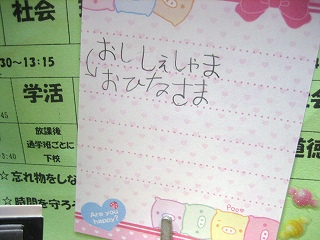 社会
30～13:15
学活
45
放課後
通学班ごとに
下校
3:40
☆忘れ物をしな
☆時間を守ろう
おししぇしゃま
おひなさま
Are you happy?
Pooe
会
道徳